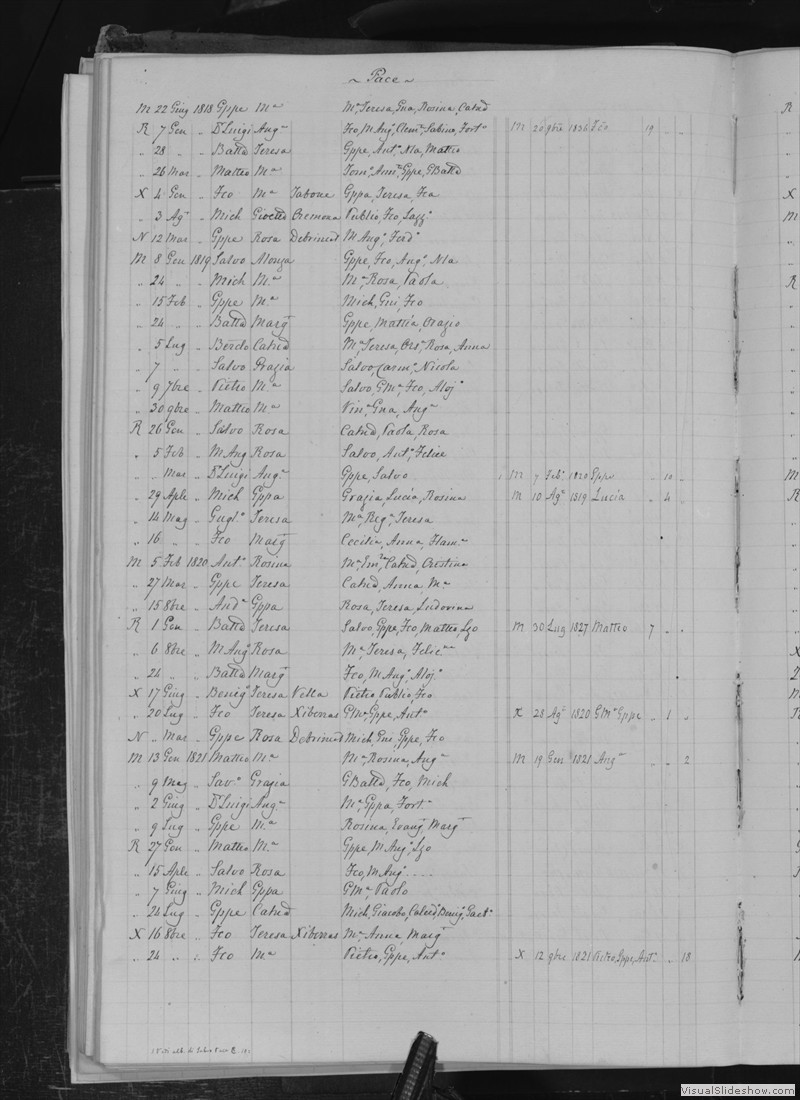 ~ Pace ~
M 22 Giug 1818 Gppe Mª Mª Teresa, Gna, Rosina, Catnd
R 7 Gen " Dr Luigi Angª Fco, M Angª, Clemª, Sabina, Fortª M 20 9bre 1834 Fco 19 " "
" 28 " " Batta Teresa Gppe, Antº, Nla, Matteo
" 26 Mar " Matteo Mª Annª, Gppe, GBatta
X 4 Gen " Fco Mª Tabone Gppa, Teresa, Fca
" 3 Agº " Mich Gioctta Cremona Publio, Fco, Lazzº
N 12 Mar " Gppe Rosa Debrincat M Angº, Ferdº
M 8 Gen 1819 Salvo Alonza Gppe, Fco, Angº, Nla
" 24 " " Mich Mª Mª, Rosa, Paola
" 15 Feb " Gppe Mª Mich, Gni, Fco
" 24 " " Batta Margª Gppe, Mattia, Orazio
" 5 Lug " Berdo Catnd Mª, Teresa, Orsª, Rosa, Anna
" 7 " " Salvo Grazia Salvo, Carmº, Nicola
" 9 7bre " Pietro Mª Salvo, GMª, Fco, Alojº
" 30 9bre " Matteo Mª Vinª, Gna, Angª
R 26 Gen " Salvo Rosa Catnd, Paola, Rosa
" 5 Feb " M Ang Rosa Salvo, Antº, Felice
" " Mar " Dr Luigi Angª Gppe, Salvo 1 M 7 Febº 1820 Gppe " 10 "
" 29 Aple " Mich Gppa Grazia, Lucia, Rosina M 10 Agº 1819 Lucia " 4 "
" 14 Mag " Guglº Teresa Mª, Regª, Teresa
" 16 " " Fco Margª Cecilia, Anna, Flamª
M 5 Feb 1820 Antº Rosina Mª, Emª, Catnd, Crestina
" 27 Mar " Gppe Teresa Catnd, Anna Mª
" 15 8bre " Andª Gppa Rosa, Teresa, Ludovina
R 1 Gen " Batta Teresa Salvo, Gppe, Fco, Matteo, Lzo M 30 Lug 1827 Matteo 7 " "
" 6 8bre " M Angº Rosa Mª, Teresa, Felicᵉ
" 24 " " Batta Margª Fco, M Angº, Alojº
X 17 Giug " Benigº Teresa Vella Pietro Publio, Fco
" 20 Lug " Fco Teresa Xiberras GMª, Gppe, Antº X 28 Agº 1820 GMª Gppe " 1 "
N " Mar " Gppe Rosa Debrincat Mich, Gni, Gppe, Fco
M 13 Gen 1821 Matteo Mª Mª, Rosina, Angª M 19 Gen 1821 Angª " " 2
" 9 Mag " Savº Grazia GBatta, Fco, Mich
" 2 Giug " Dr Luigi Angª Mª, Gppa, Fortª
" 9 Lug " Gppe Mª Rosina, Evangª, Margª
R 27 Gen " Matteo Mª Gppe, M Angº, Lzo
" 15 Aple " Salvo Rosa Fco, M Angº . . . .
" 7 Giug " Mich Gppa GMª, Paolo
" 24 Lug " Gppe Catnd Mich, Giacobo, Catnd, Benigº, Gaetº
X 16 8bre " Fco Teresa Xiberras Mª Anna, Margª
" 24 " " Fco Mª Pietro, Gppe, Antº X 12 9bre 1821 Pietro, Gppe, Antº " 18
VisualSlideshow.com